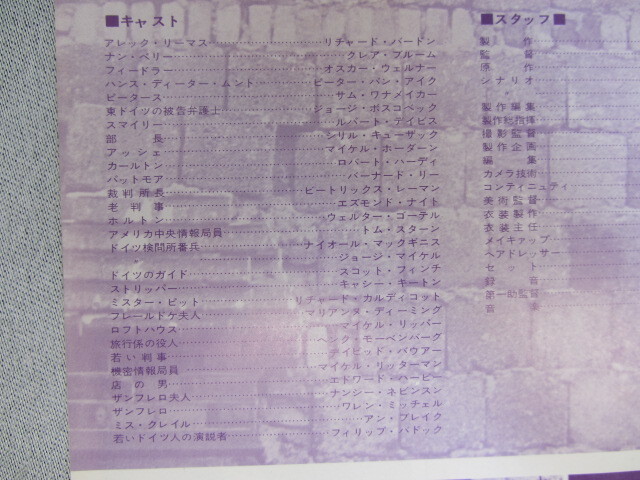 ■キャスト
アレック・リーマス リチャード・バートン
ナン・ペリー クレア・ブルーム
フィードラー オスカー・ウェルナー
ハンス・ディーター・ムント ピーター・バン・アイク
ピータース サム・ワナメイカー
東ドイツの被告弁護士 ジョージ・ボスコベック
スマイリー ルパート・デイビス
部長 シリル・キューザック
アッシェ マイケル・ホーダーン
カールトン ロバート・ハーディ
パットモア バーナード・リー
裁判所長 ビートリックス・レーマン
老判事 エズモンド・ナイト
ホルトン ウォルター・ゴーテル
アメリカ中央情報局員 トム・スターン
ドイツ検問所番兵 ナイオール・マックギニス
〃 ジョージ・マイケル
ドイツのガイド スコット・フィンチ
ストリッパー キャシー・キートン
ミスター・ピット リチャード・カルディコット
フレールドケ夫人 マリアンヌ・ディーミング
ロフトハウス マイケル・リッパー
旅行係の役人 ヘンク・モーベンバーグ
若い判事 デイビッド・バウアー
機密情報局員 マイケル・リッターマン
店の男 エドワード・ハービー
ザンフレロ夫人 ナンシー・ネビンスン
ザンフレロ ワレン・ミッチェル
ミス・クレイル アン・ブレイク
若いドイツ人の演説者 フィリップ・マドック
■スタッフ■
製作
監督
原作
シナリオ
〃
製作編集
製作総指揮
撮影監督
製作企画
編集
カメラ技術
コンティニュティ
美術監督
衣装製作
衣装主任
メイキアップ
ヘアドレッサー
セット
録音
第一助監督
音楽